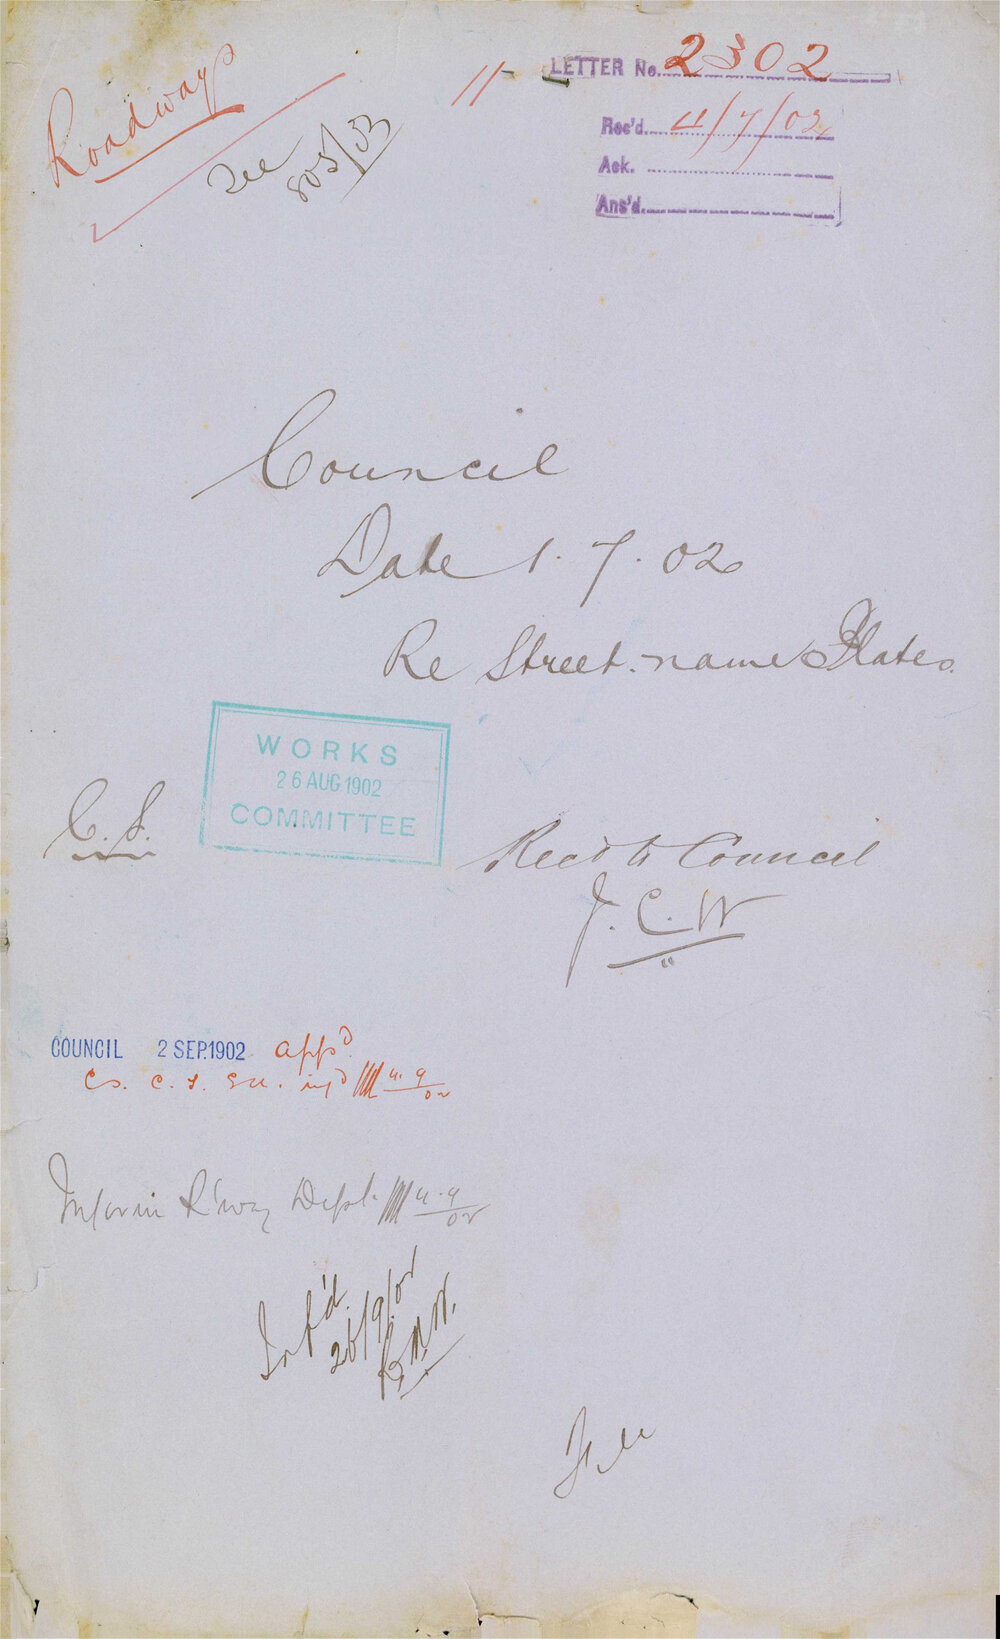 Roadways
See
805/03
11-
LETTER No. 2302
Rec'd. 11/7/02
Ack.
Ans'd.
Council
Date 1.7.02
Re Street-name Plates.
WORKS
26 AUG 1902
COMMITTEE
C.S.
Recd to Council
J.C.W
COUNCIL 2 SEP.1902 appd
Cs. C.S.
Inform R'way Dept.
Inf'd.
26/9/02
File